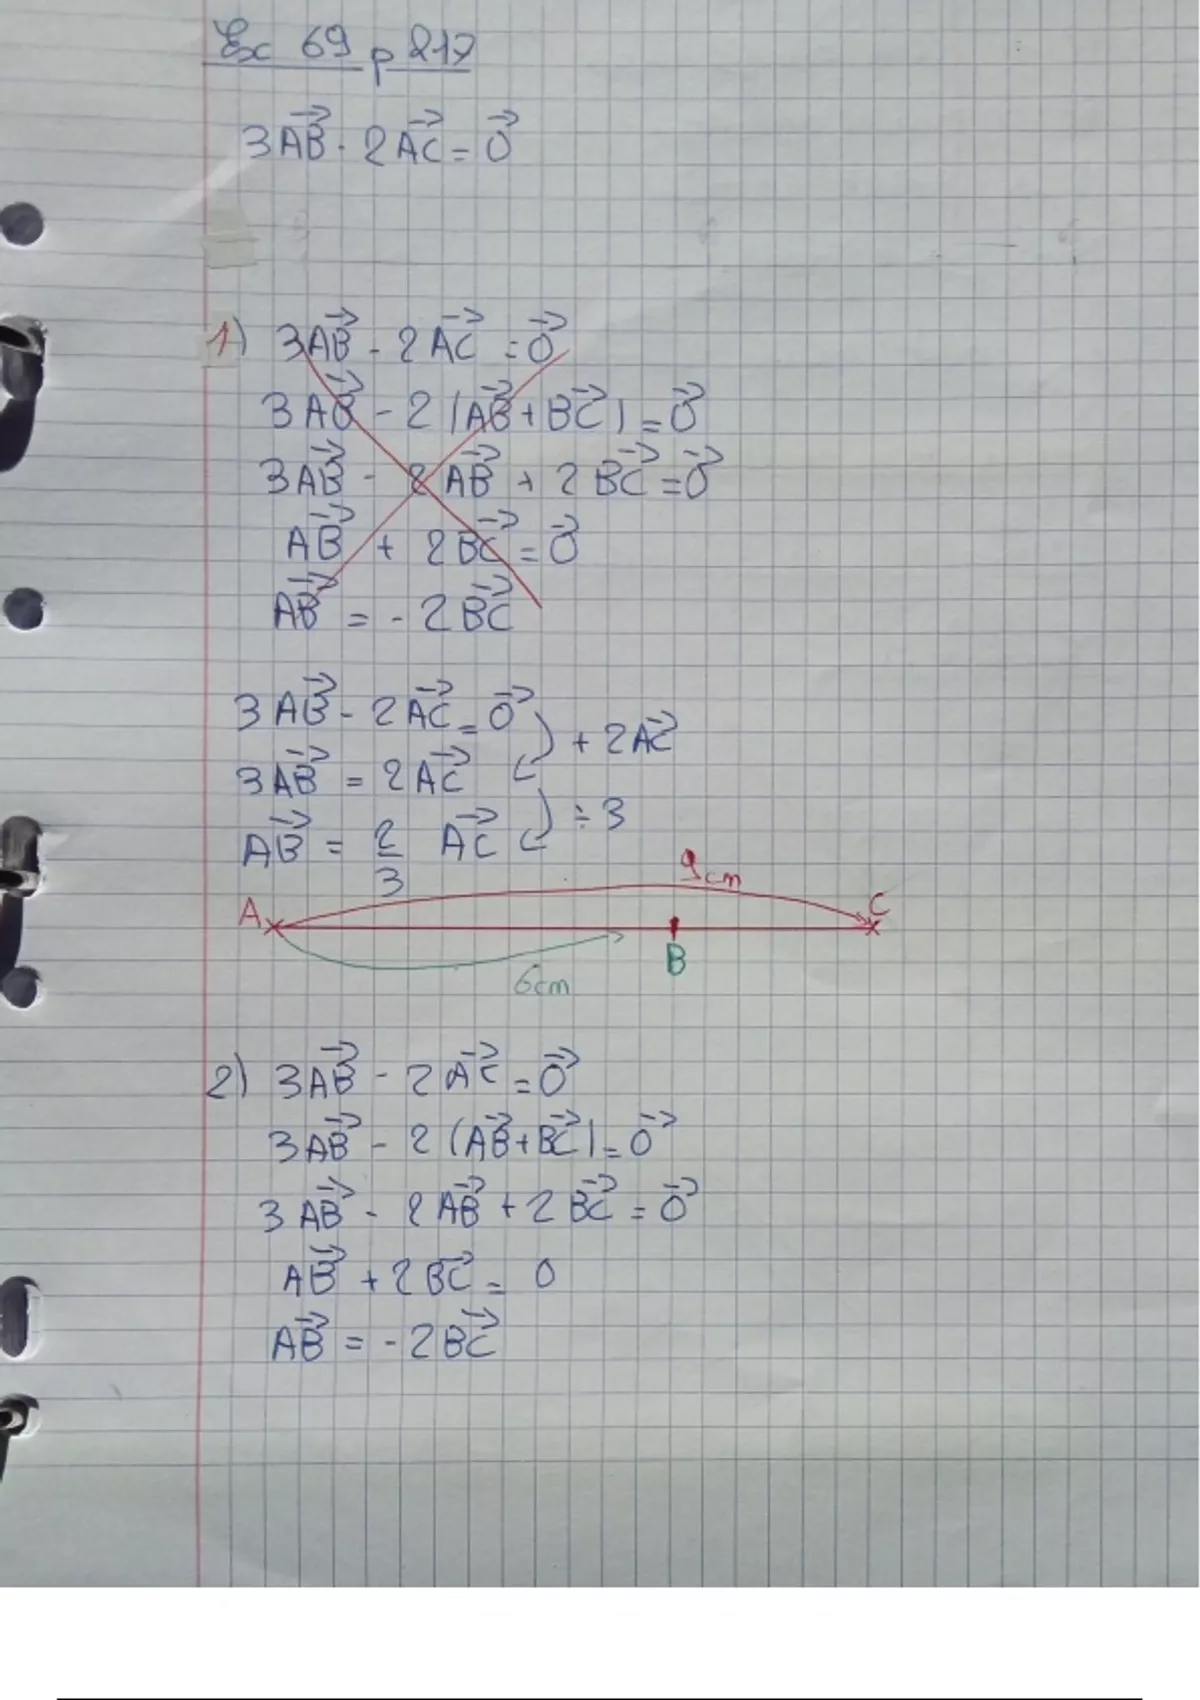 Ex 69 p 217
3AB⃗ - 2AC⃗ = 0⃗
1) 3AB⃗ - 2AC⃗ = 0⃗
3AB⃗ - 2(AB⃗ + BC⃗) = 0⃗
3AB⃗ - 2AB⃗ + 2BC⃗ = 0⃗
AB⃗ + 2BC⃗ = 0⃗
AB⃗ = - 2BC⃗
3AB⃗ - 2AC⃗ = 0⃗
+ 2AC⃗
3AB⃗ = 2AC⃗
÷ 3
AB⃗ = 2/3 AC⃗
9cm
A C
B
6cm
2) 3AB⃗ - 2AC⃗ = 0⃗
3AB⃗ - 2(AB⃗ + BC⃗) = 0⃗
3AB⃗ - 2AB⃗ + 2BC⃗ = 0⃗
AB⃗ + 2BC⃗ = 0
AB⃗ = - 2BC⃗